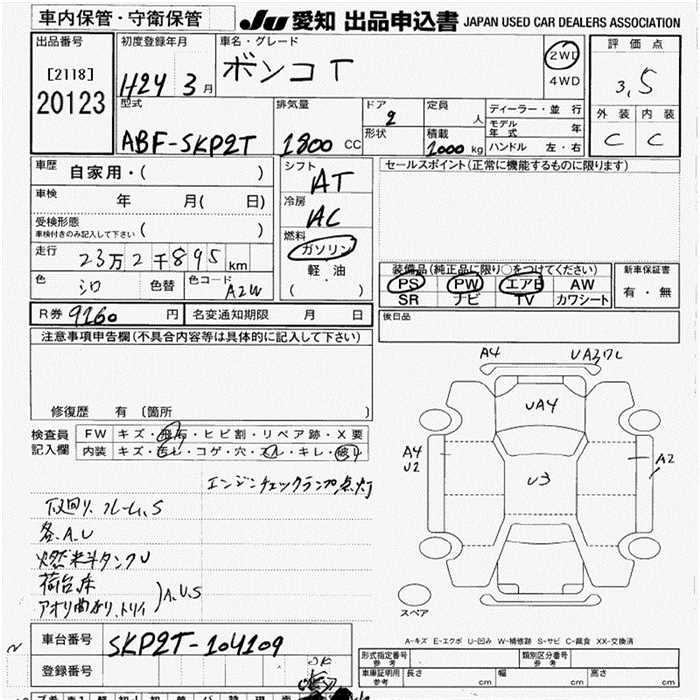 車内保管・守衛保管
JU 愛知 出品申込書 JAPAN USED CAR DEALERS ASSOCIATION
出品番号
[2118]
20123
初度登録年月
H24 3月
車名・グレード
ボンゴT
2WD
4WD
評価点
3.5
外装 内装
C C
型式
ABF-SKP2T
排気量
1800 CC
ドア
2
形状
定員
人
積載
1000 kg
ディーラー・並行
モデル年式 年
ハンドル 左・右
車歴 自家用・( )
車検 年 月( 日)
受検形態
車検付きのみ記入して下さい ( )
走行 23万2千895km
色 シロ 色替 色コード A2W
シフト
AT
冷房
AC
燃料
ガソリン
軽・油
( )
セールスポイント(正常に機能するものに限ります)
装備品(純正品に限り○をつけてください)
PS PW エアB AW
SR ナビ TV カワシート
新車保証書
有・無
R券 9260 円 名変通知期限 月 日
後日品
注意事項申告欄(不具合内容等は具体的に記入して下さい)
修復歴 有 〔箇所 〕
検査員
記入欄
FW キズ・飛石・ヒビ割・リペア跡・X要
内装 キズ・汚レ・コゲ・穴・スレ・キレ・破リ
エンジンチェックランプ点灯
下回り.フレーム.S
各.A.U
燃料タンクU
荷台床
アオリ曲り.トリイ
)A.U.S
A4 UA3ワレ
UA4
A4
U2
U3
A2
cm cm
cm cm
スペア
A-キズ E-エクボ U-凹み W-補修跡 S-サビ C-腐食 XX-交換済
車台番号 SKP2T-104109
登録番号
OK
形式指定番号
参考
類別区分番号
参考
車庫証明用
参考
長さ cm 幅 cm 高さ cm